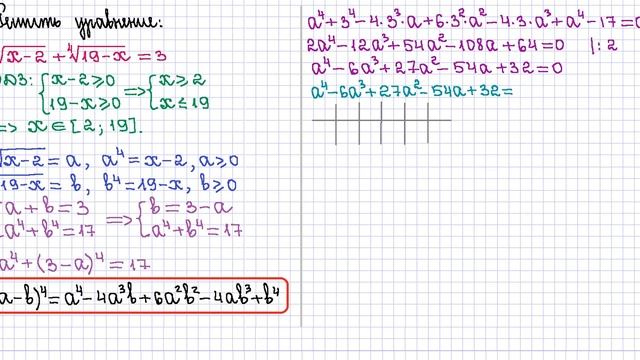 Решить уравнение:
√x-2 + ⁴√19-x = 3
ОДЗ: { x-2≥0 ⇒ { x≥2
19-x≥0 x≤19
=> x ∈ [2; 19].
√x-2 = a, a⁴ = x-2, a≥0
√19-x = b, b⁴ = 19-x, b≥0
{ a + b = 3 ⇒ { b = 3-a
a⁴ + b⁴ = 17 a⁴ + b⁴ = 17
a⁴ + (3-a)⁴ = 17
(a-b)⁴ = a⁴ - 4a³b + 6a²b² - 4ab³ + b⁴
a⁴ + 3⁴ - 4·3³·a + 6·3²·a² - 4·3·a³ + a⁴ - 17 = 0
2a⁴ - 12a³ + 54a² - 108a + 64 = 0 |: 2
a⁴ - 6a³ + 27a² - 54a + 32 = 0
a⁴ - 6a³ + 27a² - 54a + 32 =